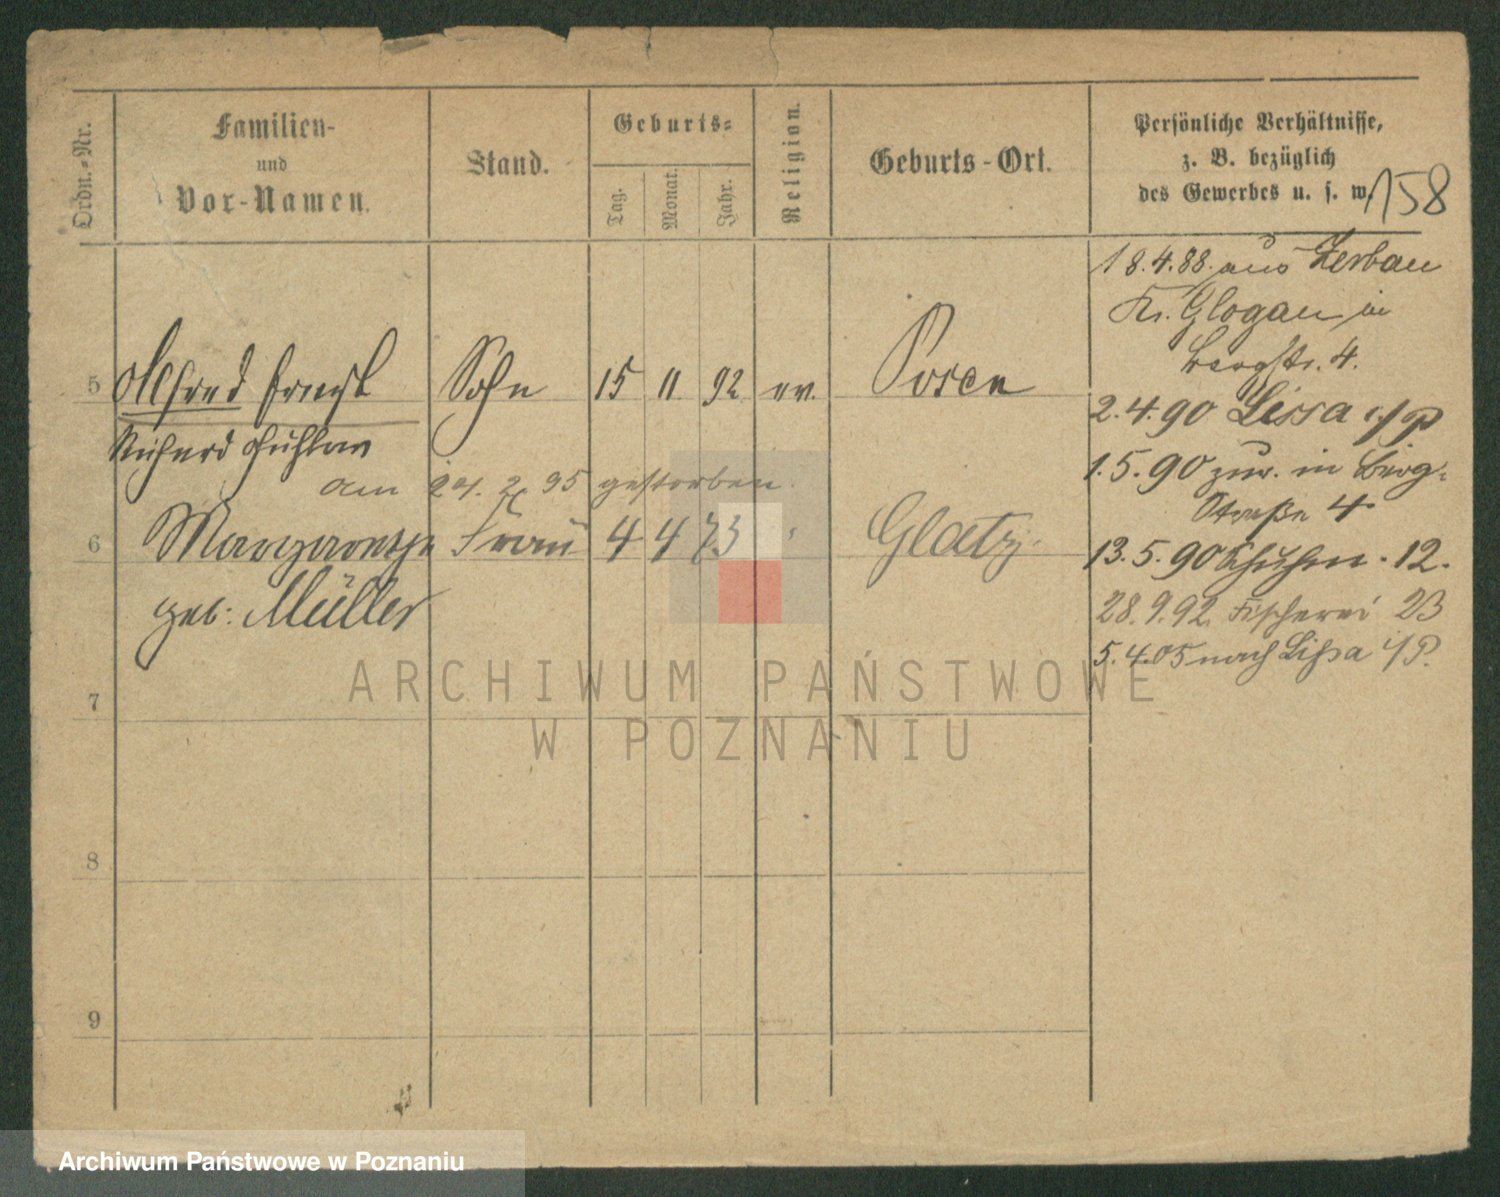 Ordn.-Nr.
Familien-
und
Vor-Namen.
Stand.
Geburts-
Tag.
Monat.
Jahr.
Religion.
Geburts-Ort.
Persönliche Verhältnisse,
z. B. bezüglich
des Gewerbes u. s. w.
158
18.4.88. aus Zerbau
Kr. Glogau in
Bergstr. 4.
2.4.90 Lissa i/P
1.5.90 zur. in Berg-
Straße 4
13.5.90 12.
28.9.92. Fischerei 23
5.4.05 nach Lissa i/P.
5 Alfred Ernst Sohn 15 11 92 ev. Posen
Richard Gustav
am 2. 95 gestorben.
6 Margarethe Frau 4 4 73 Glatz
geb: Müller
7
8
9
ARCHIWUM PAŃSTWOWE
W POZNANIU
Archiwum Państwowe w Poznaniu